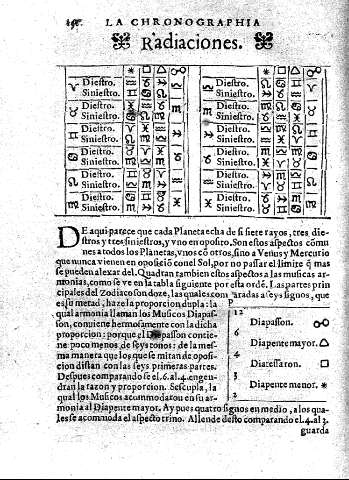 LA CHRONOGRAPHIA
Radiaciones.
* □ △ ☍ * □ △ ☍
♈ Diestro. ♒ ♑ ♐ ♎ Diestro. ♌ ♋ ♊ ♈
Siniestro. ♊ ♋ ♌ Siniestro. ♐ ♑ ♒
♉ Diestro. ♓ ♒ ♑ ♏ Diestro. ♍ ♌ ♋ ♉
Siniestro. ♋ ♌ ♍ Siniestro. ♑ ♒ ♓
♊ Diestro. ♈ ♓ ♒ ♐ Diestro. ♎ ♍ ♌ ♊
Siniestro. ♌ ♍ ♎ Siniestro. ♒ ♓ ♈
♋ Diestro. ♉ ♈ ♓ ♑ Diestro. ♏ ♎ ♍ ♋
Siniestro. ♍ ♎ ♏ Siniestro. ♓ ♈ ♉
♌ Diestro. ♊ ♉ ♈ ♒ Diestro. ♐ ♏ ♎ ♌
Siniestro. ♎ ♏ ♐ Siniestro. ♈ ♉ ♊
♍ Diestro. ♋ ♊ ♉ ♓ Diestro. ♑ ♐ ♏ ♍
Siniestro. ♏ ♐ ♑ Siniestro. ♉ ♊ ♋
DE aqui parece que cada Planeta echa de si siete rayos, tres die-
stros y tres siniestros, y vno en oposito. Son estos aspectos cõmu
nes a todos los Planetas, vnos cõ otros, sino a Venus y Mercurio
que nunca vienen en oposiciõ conel Sol, por no passar el limite q̃ mas
se pueden alexar del. Quadran tambien estos aspectos a las musicas ar-
monias, como se ve en la tabla siguiente por esta ordẽ. Las partes prin
cipales del Zodiaco son doze, las quales comparadas a seys signos, que
es su metad, haze la proporcion dupla: la
qual armonia llaman los Musicos Diapas-
son, conuiene hermosamente con la dicha
proporcion: porque el Diapasson contie-
ne poco menos de seys tonos: de la mes-
ma manera que los que se mitan de oposi-
cion distan con las seys primeras partes.
Despues comparando se el. 6. al. 4. engen-
dran la razon y proporcion. Sescupla, la
qual los Musicos acomodaron en su ar-
monia al Diapente mayor. Ay pues quatro signos en medio, a los qua-
les se acomoda el aspecto trino. Allende desto comparando el. 4. al 3.
guarda
12
Diapasson. ☍
6
Diapente mayor. △
4
Diatessaron. □
3
Diapente menor. *